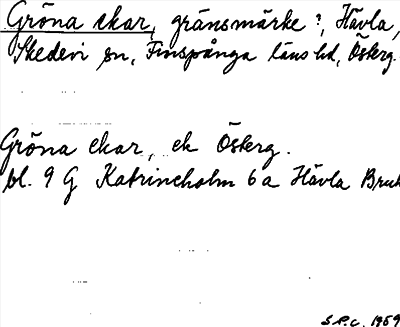 Gröna ekar, gränsmärke?, Hävla,
Skedevi sn, Finspånga läns hd, Österg.
Gröna ekar, ek Österg.
bl. 9 G Katrineholm 6a Hävla Bruk
S.P.C. 1959